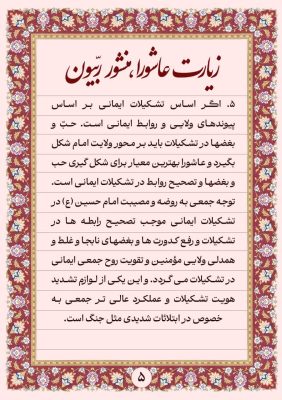 زیارت عاشورا، منشور ربیّون
۵. اگر اساس تشکیلات ایمانی بر اساس
پیوندهای ولایی و روابط ایمانی است. حبّ و
بغضها در تشکیلات باید بر محور ولایت امام شکل
بگیرد و عاشورا بهترین معیار برای شکل گیری حب
و بغضها و تصحیح روابط در تشکیلات ایمانی است.
توجه جمعی به روضه و مصیبت امام حسین (ع) در
تشکیلات ایمانی موجب تصحیح رابطه ها در
تشکیلات و رفع کدورت ها و بغضهای نابجا و غلط و
همدلی ولایی مؤمنین و تقویت روح جمعی ایمانی
در تشکیلات می گردد. و این یکی از لوازم تشدید
هویت تشکیلات و عملکرد عالی تر جمعی به
خصوص در ابتلائات شدیدی مثل جنگ است.
۵